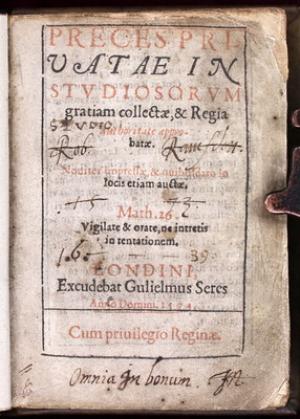 PRECES PRI
VATAE IN
STVDIOSORVM
gratiam collectæ, & Regia
authoritate appro-
batæ.
STVDIO
Rob.
Nouiter impressæ, & quibusdam in
locis etiam auctæ.
15 73
Math. 26.
Vigilate & orate, ne intretis
in tentationem.
LONDINI,
Excudebat Gulielmus Seres
Anno Domini. 1574.
Cum priuilegio Reginæ.
Omnia In bonum.